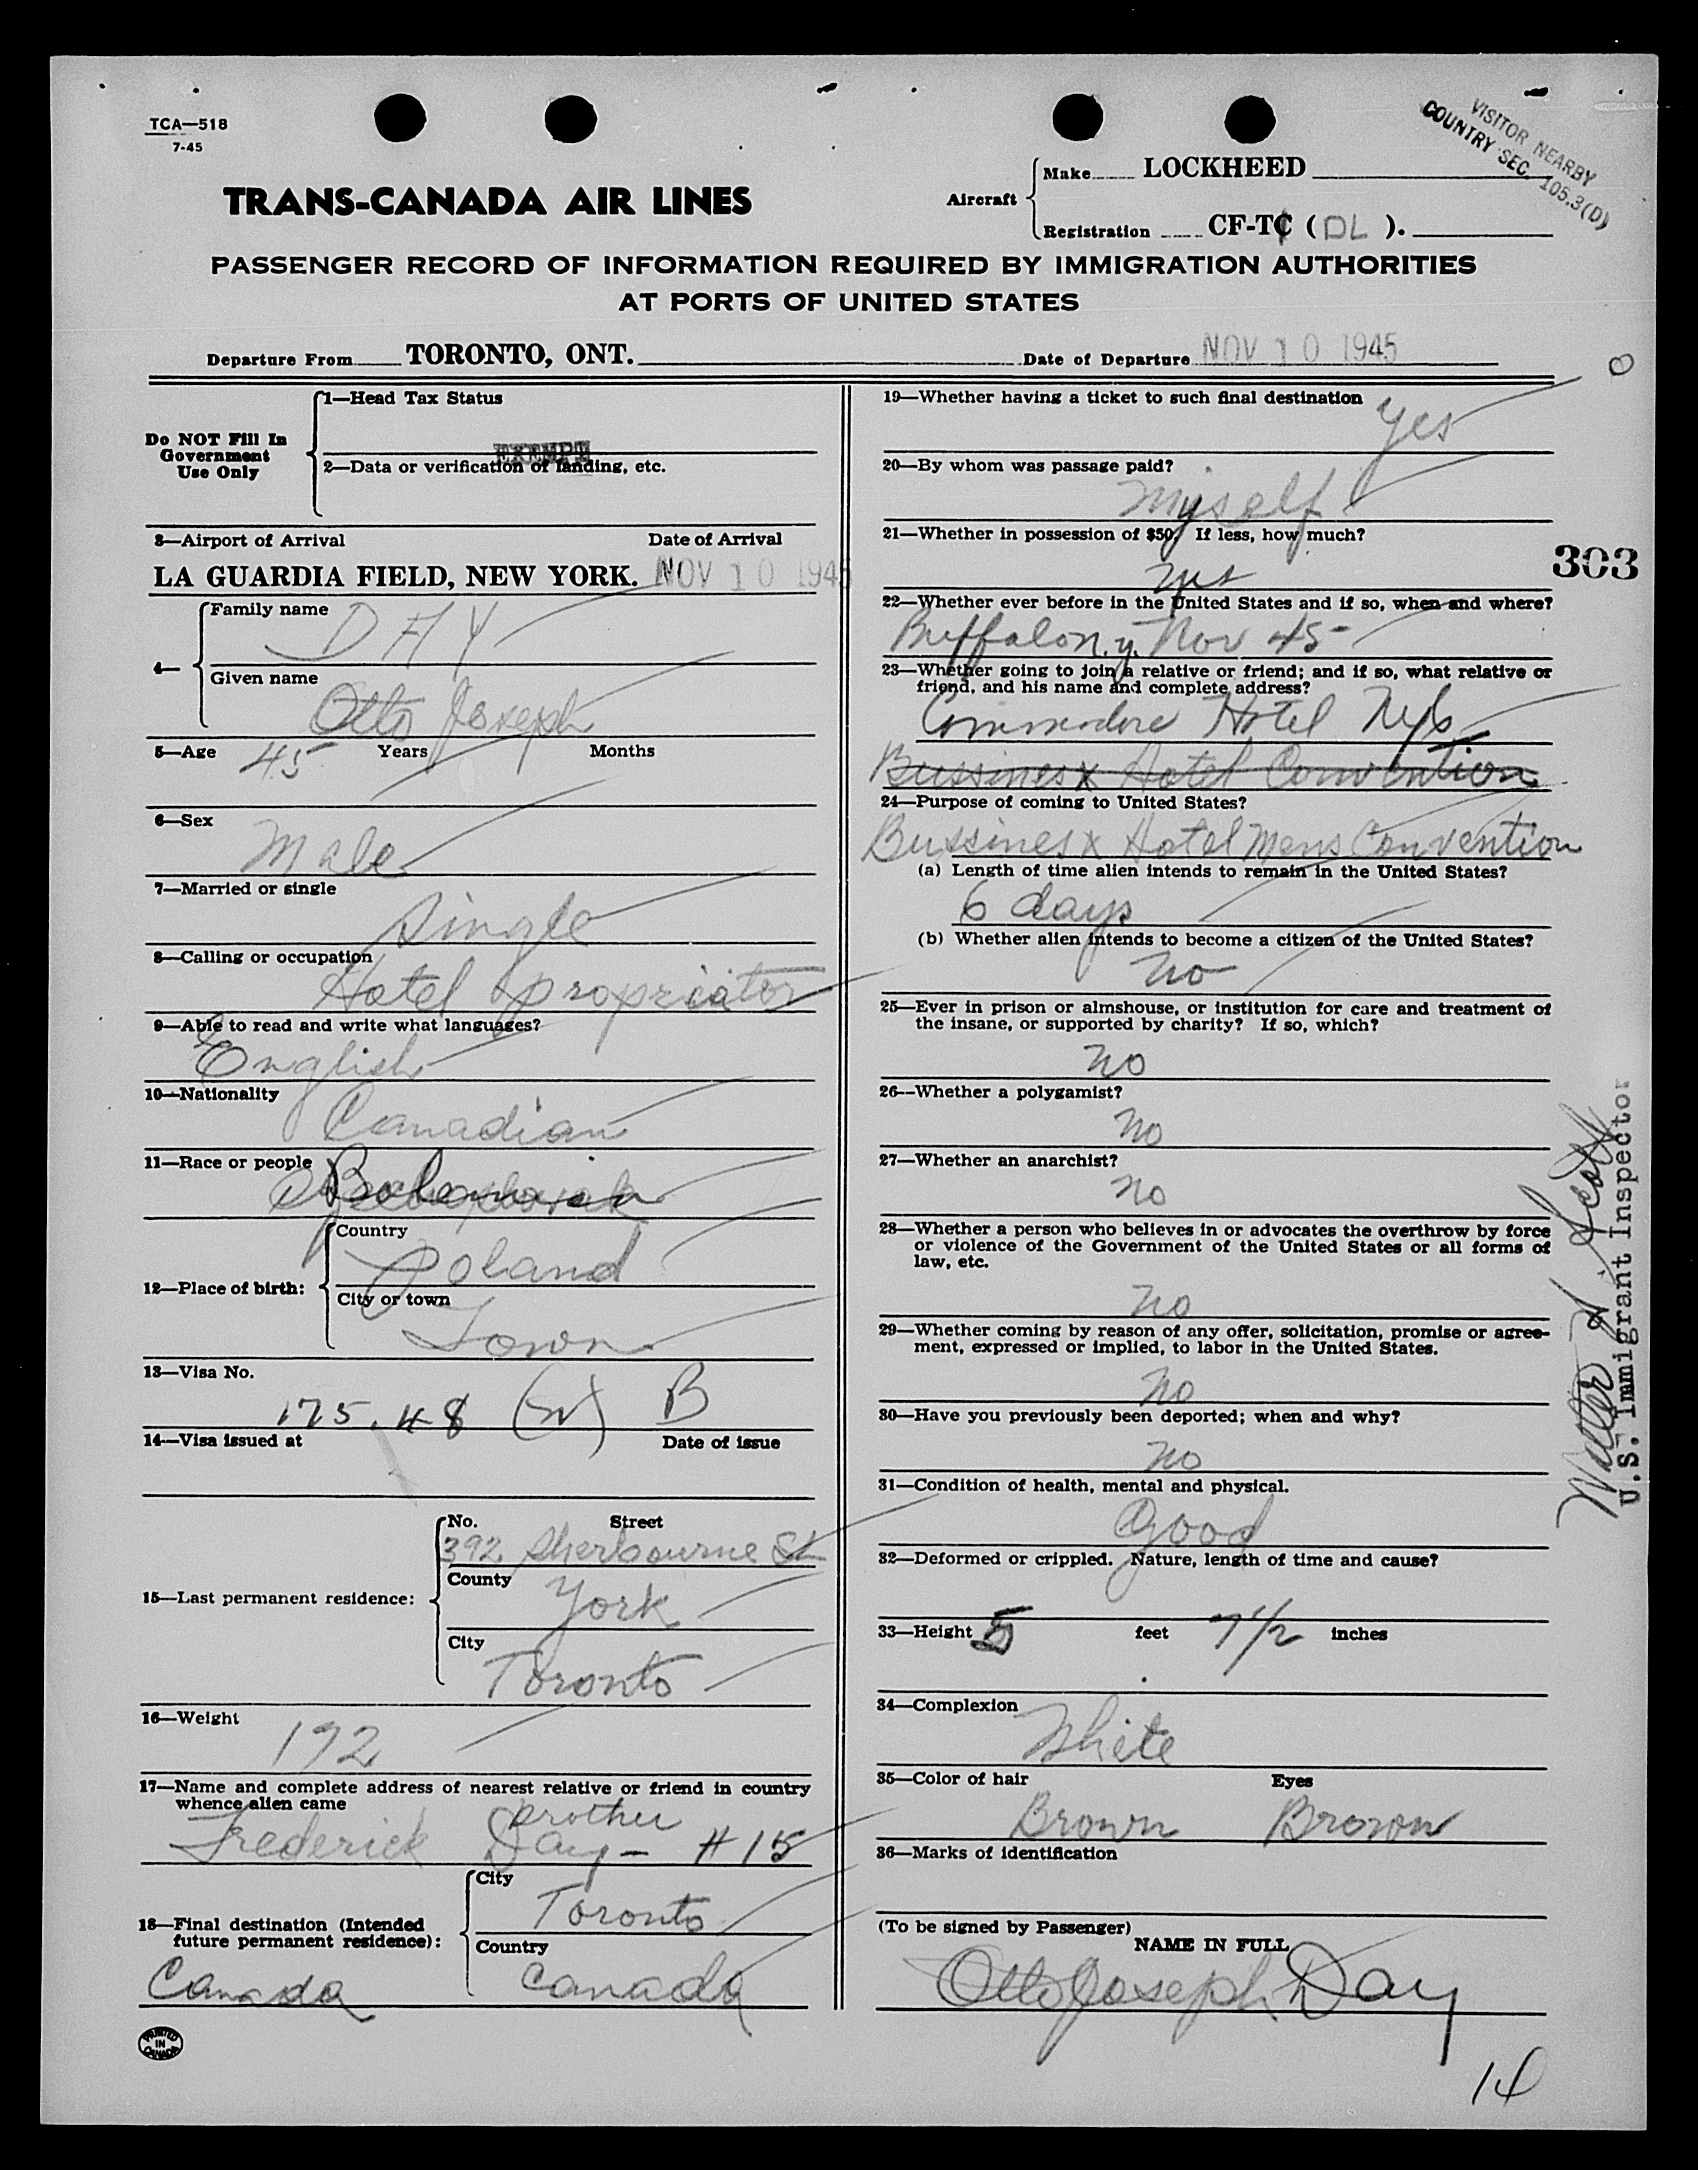 TCA—518
7-45
VISITOR NEARBY
COUNTRY SEC. 105.3(D)
TRANS-CANADA AIR LINES
Aircraft
Make LOCKHEED
Registration CF-TC ( DL ).
PASSENGER RECORD OF INFORMATION REQUIRED BY IMMIGRATION AUTHORITIES
AT PORTS OF UNITED STATES
Departure From TORONTO, ONT. Date of Departure NOV 10 1945
Do NOT Fill In
Government
Use Only
1—Head Tax Status
EXEMPT
2—Data or verification of landing, etc.
3—Airport of Arrival Date of Arrival
LA GUARDIA FIELD, NEW YORK. NOV 10 1945
4—
Family name
DAY
Given name
Otto Joseph
5—Age 45 Years Months
6—Sex
Male
7—Married or single
Single
8—Calling or occupation
Hotel propriator
9—Able to read and write what languages?
English
10—Nationality
Canadian
11—Race or people
Bohemian
12—Place of birth:
Country
Poland
City or town
Town
13—Visa No.
175.48 B
14—Visa issued at Date of issue
15—Last permanent residence:
No. Street
392 Sherbourne St
County
York
City
Toronto
16—Weight
192
17—Name and complete address of nearest relative or friend in country
whence alien came
brother
Frederick Day - #15
18—Final destination (Intended
future permanent residence):
City
Toronto
Country
Canada
Canada
PRINTED
IN
CANADA
19—Whether having a ticket to such final destination
yes
20—By whom was passage paid?
Myself
21—Whether in possession of $50. If less, how much?
yes
303
22—Whether ever before in the United States and if so, when and where?
Buffalo n.y. Nov 45
23—Whether going to join a relative or friend; and if so, what relative or
friend, and his name and complete address?
Commodore Hotel Nyc
Bussiness Hotel Convention
24—Purpose of coming to United States?
Bussiness Hotel Mens Convention
(a) Length of time alien intends to remain in the United States?
6 days
(b) Whether alien intends to become a citizen of the United States?
no
25—Ever in prison or almshouse, or institution for care and treatment of
the insane, or supported by charity? If so, which?
no
26—Whether a polygamist?
no
27—Whether an anarchist?
no
28—Whether a person who believes in or advocates the overthrow by force
or violence of the Government of the United States or all forms of
law, etc.
no
29—Whether coming by reason of any offer, solicitation, promise or agree-
ment, expressed or implied, to labor in the United States.
no
30—Have you previously been deported; when and why?
no
31—Condition of health, mental and physical.
Good
32—Deformed or crippled. Nature, length of time and cause?
33—Height 5 feet 7 1/2 inches
34—Complexion
White
35—Color of hair Eyes
Brown Brown
36—Marks of identification
(To be signed by Passenger)
NAME IN FULL
Otto Joseph Day
14
U.S. Immigrant Inspector